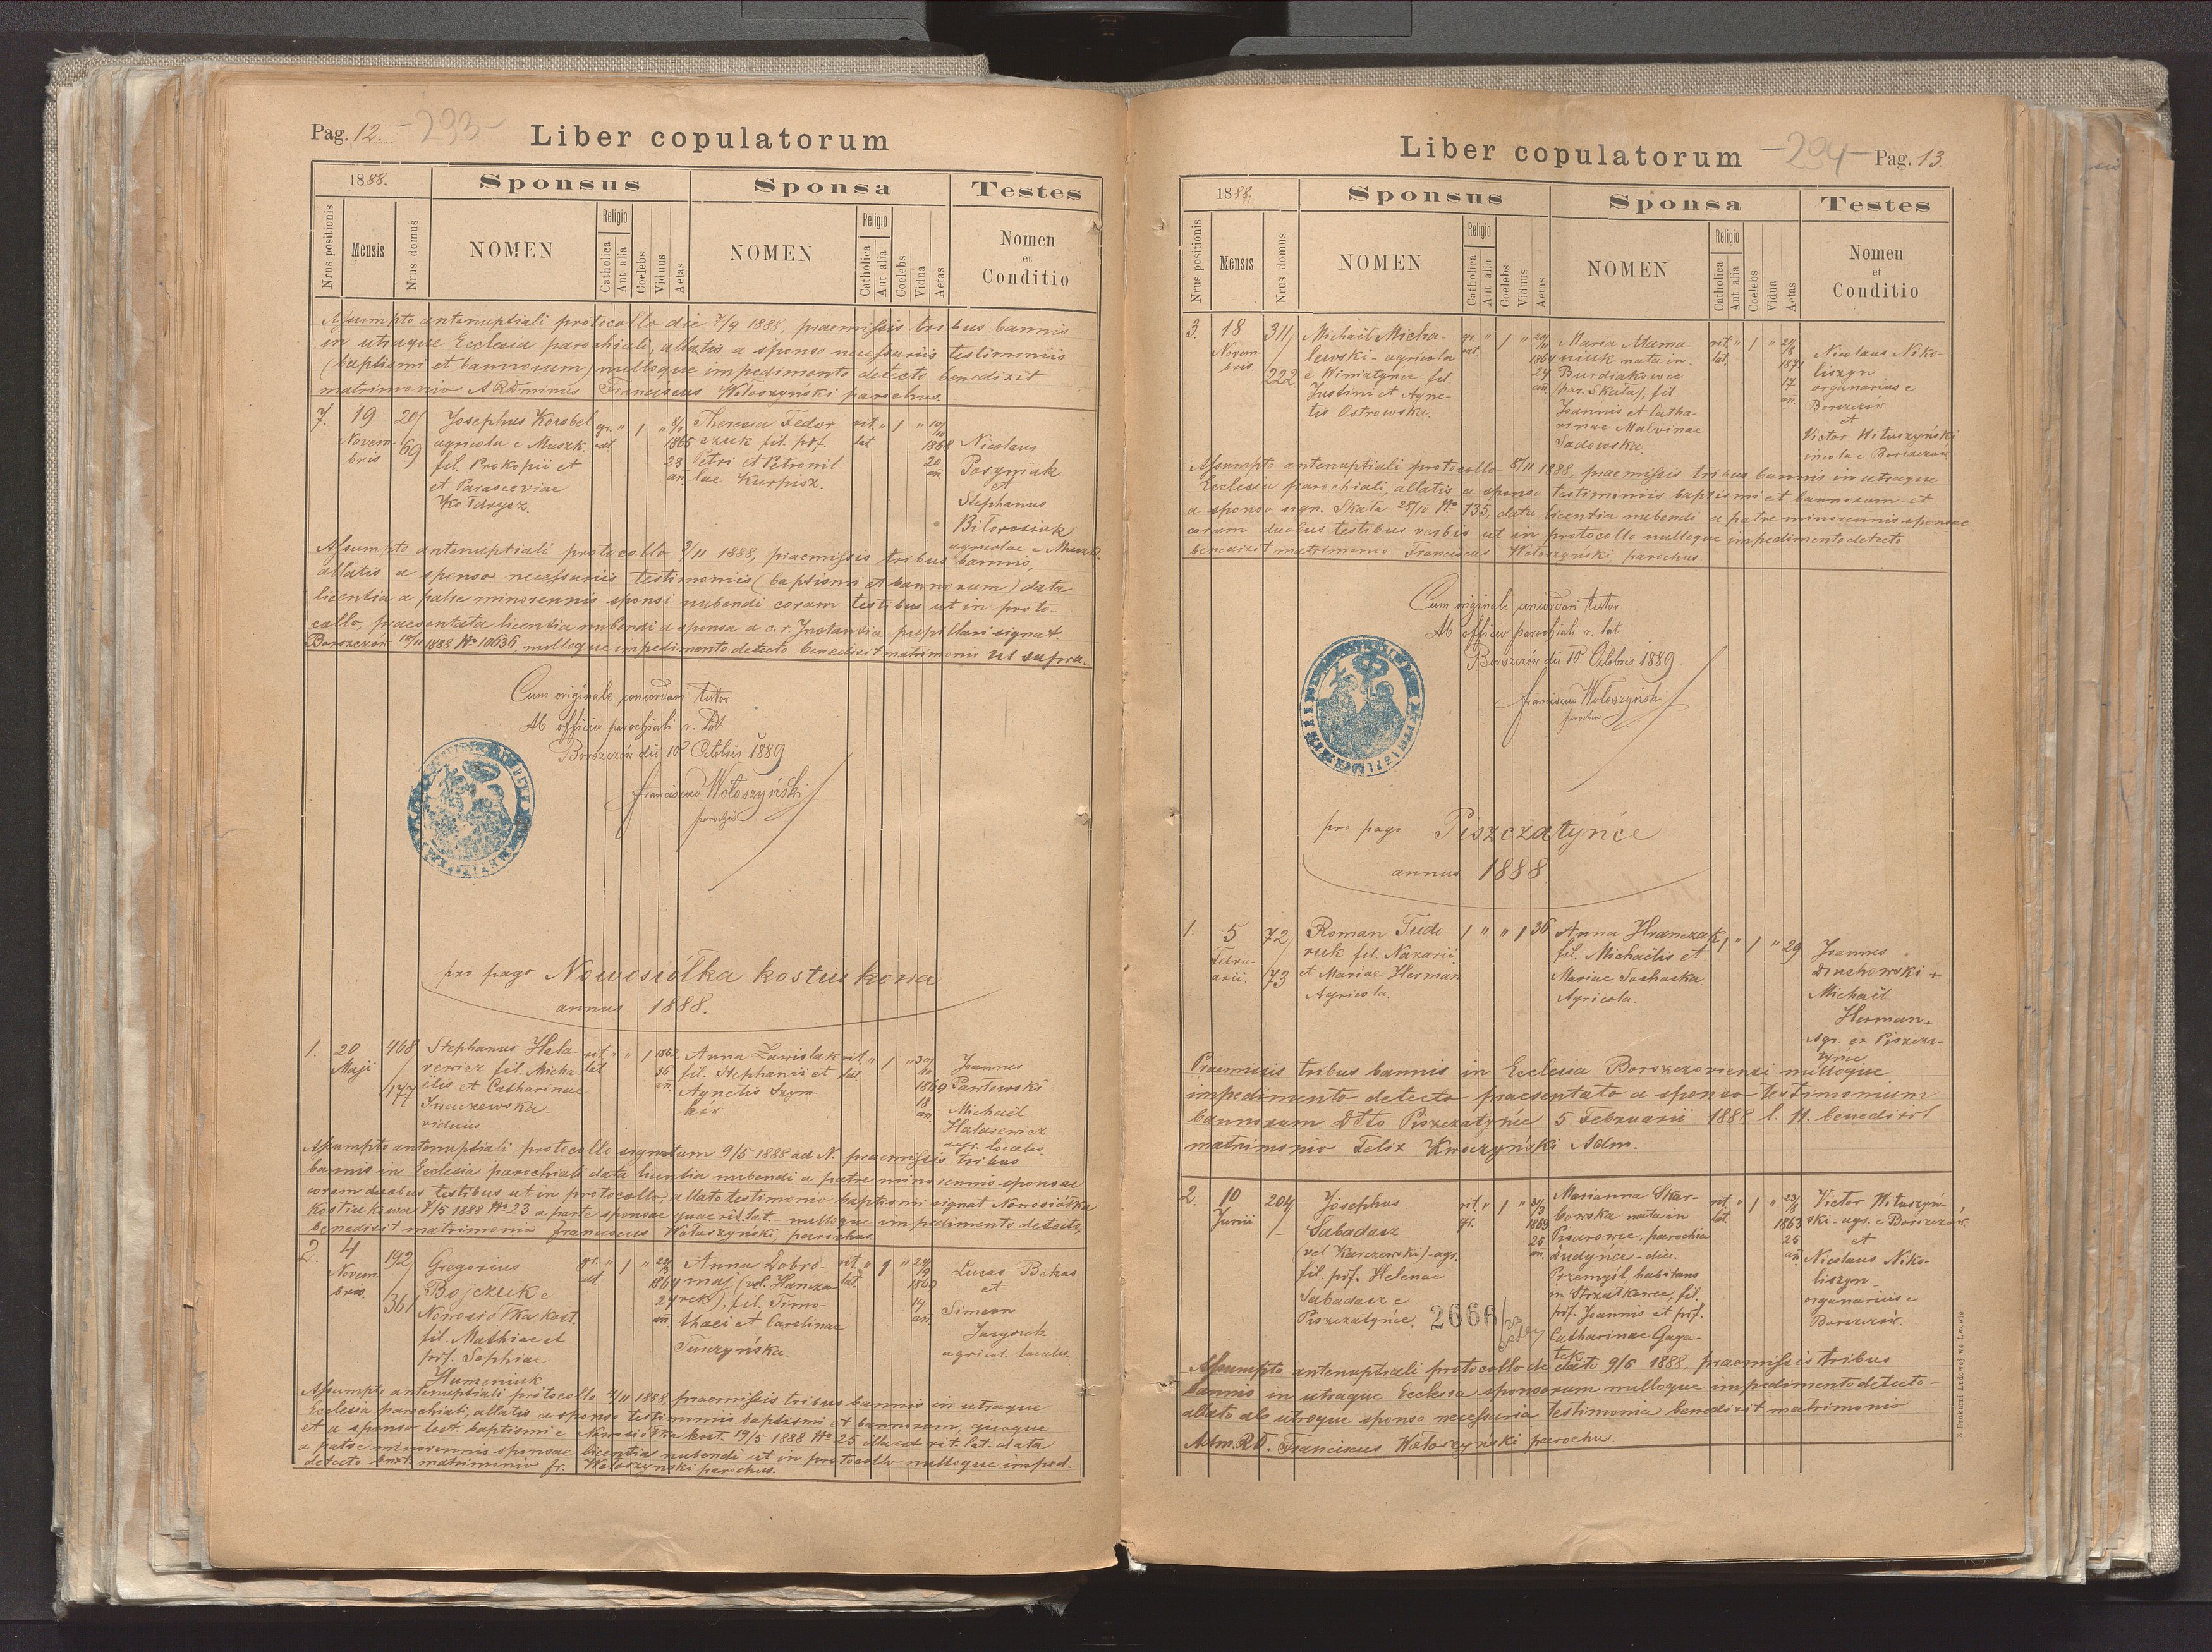 Pag. 12. -293- Liber copulatorum
1888. Sponsus Sponsa Testes
Nrus positionis Mensis Nrus domus NOMEN Religio Catholica Aut alia Coelebs Viduus Aetas NOMEN Religio Catholica Aut alia Coelebs Vidua Aetas Nomen et Conditio
Assumpto antenuptiali protocollo die 7/9 1888, praemissis tribus bannis
in utraque Ecclesia parochiali, allatis a sponso necessariis testimoniis
(baptismi et bannorum) nulloque impedimento detecto benedixit
matrimonio ARDminus Franciscus Wołoszyński parochus.
7. 19 Novembris 207/69
Josephus Korobel
agricola e Muszk.
fil. Prokopii et
et Parasceviae
Kołdrysz.
gr. cat. " 1 " 1865 23 an.
Theresia Fedor
czuk fil. pdf.
Petri et Petronil-
lae Kurpisz.
rit. lat. " 1 " 1868 20 an.
Nicolaus
Posyniak
et
Stephanus
Bilorosiuk
agricolae e Muszk.
Assumpto antenuptiali protocollo 3/11 1888, praemissis tribus bannis,
allatis a sponso necessariis testimoniis (baptismi et bannorum) data
licentia a patre minorennis sponsi nubendi coram testibus ut in proto-
collo, praesentata licentia nubendi a sponsa a c. r. Instantia pupillari signat.
Borszczów 10/11 1888 No 10636, nulloque impedimento detecto benedixit matrimonio ut supra.
Cum originale concordari testor
Ab officio parochiali r. lat
Borszczów die 10 Octobris 1889
Franciscus Wołoszyński
parochus
pro pago Nowosiółka kostiukowa
annus 1888.
1. 20 Maji 468/177
Stephanus Hala-
rewicz fil. Micha-
ëlis et Catharinae
Iwaszewska
viduus
rit. lat. " " 1 1852 36 an.
Anna Zawislak
fil. Stephanii et
Agnetis Szym-
ków.
rit. lat. " 1 " 30/10 1869 18 an.
Joannes
Pawłowski
Michaël
Halarewicz
agr. locales.
Assumpto antenuptiali protocollo signatum 9/5 1888 ad N. praemissis tribus
bannis in Ecclesia parochiali data licentia nubendi a patre minorennis sponsae
coram duobus testibus ut in protocollo, allato testimonio baptismi signat Nowosiółka
kostiukowa 7/5 1888 No 23 a parte sponsae quae rit lat. nulloque impedimento detecto,
benedixit matrimonio Franciscus Wołoszyński, parochus.
2. 4 Novembris 192/361
Gregorius
Bojczuk e
Nowosiółka kost.
fil. Mathiae et
pdf. Sophiae
Humeniuk
gr. cat. " 1 " 1864 24 an.
Anna Dobro-
maj (vel. Hancza-
ruk), fil. Timo-
thaei et Carolinae
Tuszyńska.
rit. lat. " 1 " 1869 19 an.
Lucas Bekas
et
Simeon
Jacyszek
agricol. locales.
Assumpto antenuptiali protocollo 4/11 1888, praemissis tribus bannis in utraque
Ecclesia parochiali, allatis a sponso testimoniis baptismi et bannorum, quoque
et a sponso test. baptismi e Nowosiółka kost. 19/5 1888 No 25 illa est rit. lat. data
a patre minorennis sponsae licentia nubendi ut in protocollo nulloque imped.
detecto bnxt matrimonio fr. Wołoszyński parochus.
Liber copulatorum -294- Pag. 13.
1888. Sponsus Sponsa Testes
Nrus positionis Mensis Nrus domus NOMEN Religio Catholica Aut alia Coelebs Viduus Aetas NOMEN Religio Catholica Aut alia Coelebs Vidua Aetas Nomen et Conditio
3. 18 Novembris 311/222
Michaël Micha-
lewski - agricola
e Winiatyńce, fil.
Justini et Agne-
tis Ostrowska.
gr. cat. " 1 " 1864 24 an
Maria Atama-
niuk nata in
Burdiakowce
(par. Skała), fil.
Joannis et Catha-
rinae Malvinae
Sadowska.
rit. lat. " 1 " 1871 17 an.
Nicolaus Niko-
liszyn
organarius e
Borszczów
et
Victor Wituszyński
incola e Borszczów
Assumpto antenuptiali protocollo 8/11 1888, praemissis tribus bannis in utraque
Ecclesia parochiali, allatis a sponso testimoniis baptismi et bannorum et
a sponso sign. Skała 28/10 No 135, data licentia nubendi a patre minorennis sponsae
coram duobus testibus verbis ut in protocollo nulloque impedimento detecto
benedixit matrimonio Franciscus Wołoszyński, parochus.
Cum originali concordari testor
Ab officio parochiali r. lat
Borszczów die 10 Octobris 1889
Franciscus Wołoszyński
parochus
pro pago Piszczatyńce
annus 1888
1. 5 Februarii. 72/73
Roman Tude-
ruk fil. Nazarii
et Mariae Herman
Agricola.
1 " " 1 36
Anna Hranczuk
fil. Michaëlis et
Mariae Sochacka
Agricola.
1 " 1 " 29
Joannes
Druchowski +
Michaël
Herman
Agr. ex Piszcza-
tyńce
Praemissis tribus bannis in Ecclesia Borszczoviensi nulloque
impedimento detecto praesentato a sponso testimonium
bannorum dtto Piszczatyńce 5 Februarii 1888 l. 11. benedixit
matrimonio Felix Kwoczyński Adm.
2. 10 Junii 204/-
Josephus
Sabadasz
(vel Karczewski) - agr.
fil. pdf. Helenae
Sabadasz e
Piszczatyńce.
rit. gr. " 1 " 31/3 1863 25 an.
Marianna Skar-
bowska nata in
Pisarowce, parochia
Dudyńce - diec.
Przemyśl, habitans
in Strzałkowce, fil.
pdf. Joannis et pdf.
Catharinae Gaga-
tek
rit. lat. " 1 " 1863 25 an
Victor Wituszyń-
ski - agr. e Borszczów.
et
Nicolaus Niko-
liszyn -
organarius e
Borszczów.
2666/
Assumpto antenuptiali protocollo de dato 9/6 1888 praemissis tribus
bannis in utraque Ecclesia sponsorum nulloque impedimento detecto -
allato ab utroque sponso necessaria testimonia benedixit matrimonio
Adm. RD. Franciscus Wołoszyński parochu.
Z Drukarni Ludowej we Lwowie